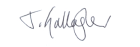 J. Gallagher